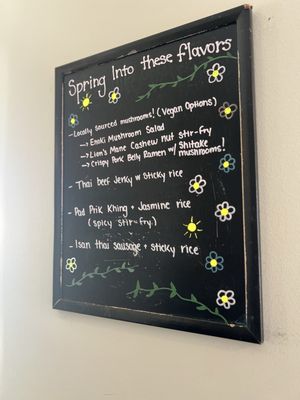 Spring Into these flavors
- Locally sourced mushrooms! (Vegan Options)
→ Enoki Mushroom Salad
→ Lion's Mane Cashew nut stir-fry
→ Crispy Pork Belly Ramen w/ Shitake mushrooms!
- Thai beef Jerky w sticky rice
- Pad Prik Khing + Jasmine rice
(spicy stir-fry)
- Isan thai sausage + sticky rice